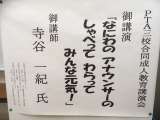 PTA三校合同成人教育講演会
御講演
「なにわのアナウンサーの
しゃべって わらって
みんな元気！」
御講師
寺谷 一紀 氏